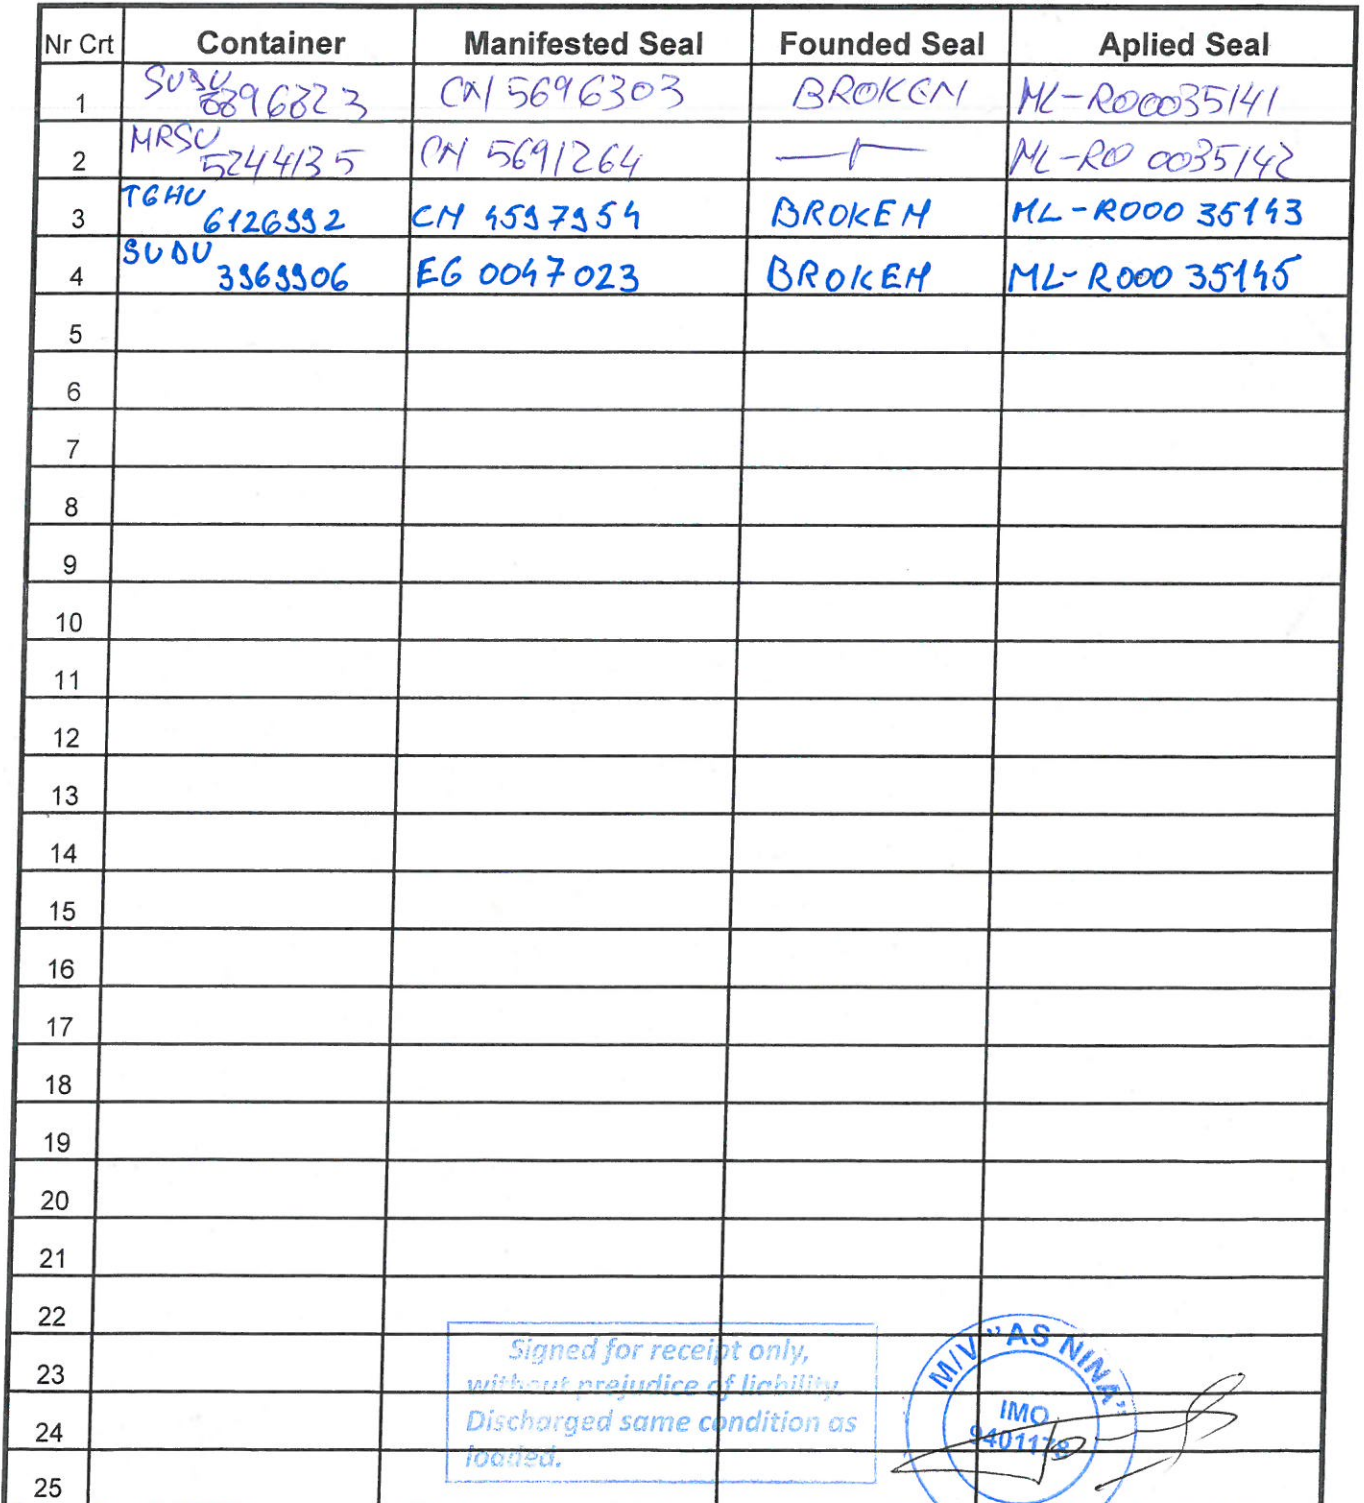 Nr Crt Container Manifested Seal Founded Seal Aplied Seal
1 SUDU 8896823 CN 5696303 BROKEN ML-RO0035141
2 MRSU 5244135 CN 5691264 —〃— ML-RO 0035142
3 TGHU 6126992 CN 4597954 BROKEN ML-RO00 35143
4 SUDU 3969906 EG 0047023 BROKEN ML-RO00 35145
5
6
7
8
9
10
11
12
13
14
15
16
17
18
19
20
21
22
23
24
25
Signed for receipt only,
without prejudice of liability.
Discharged same condition as
loaded.
M/V "AS NINA"
IMO
9401178